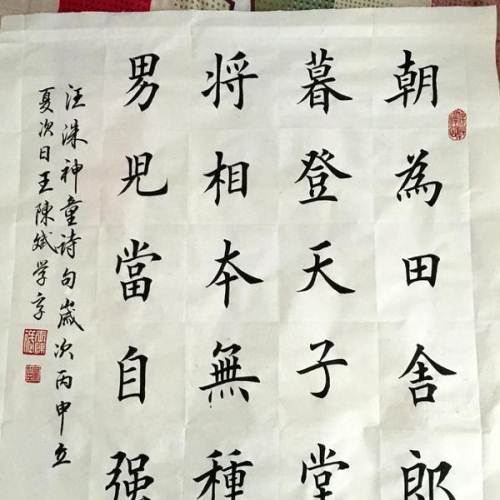 朝為田舍郎
暮登天子堂
将相本無種
男児當自强
汪洙神童诗句歲次丙申立
夏次日王陳斌学享